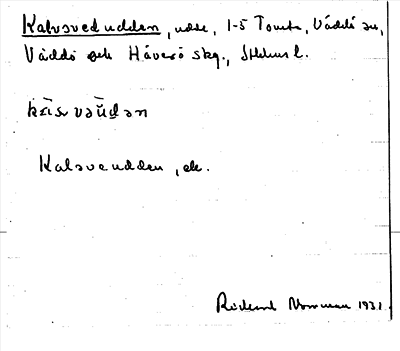 Kalvsvedudden, udde, 1-5 Tomta, Väddö sn,
Väddö och Häverö skg., Sthlms l.
Kalsveudden, ek.
Rickard Norrman 1931.